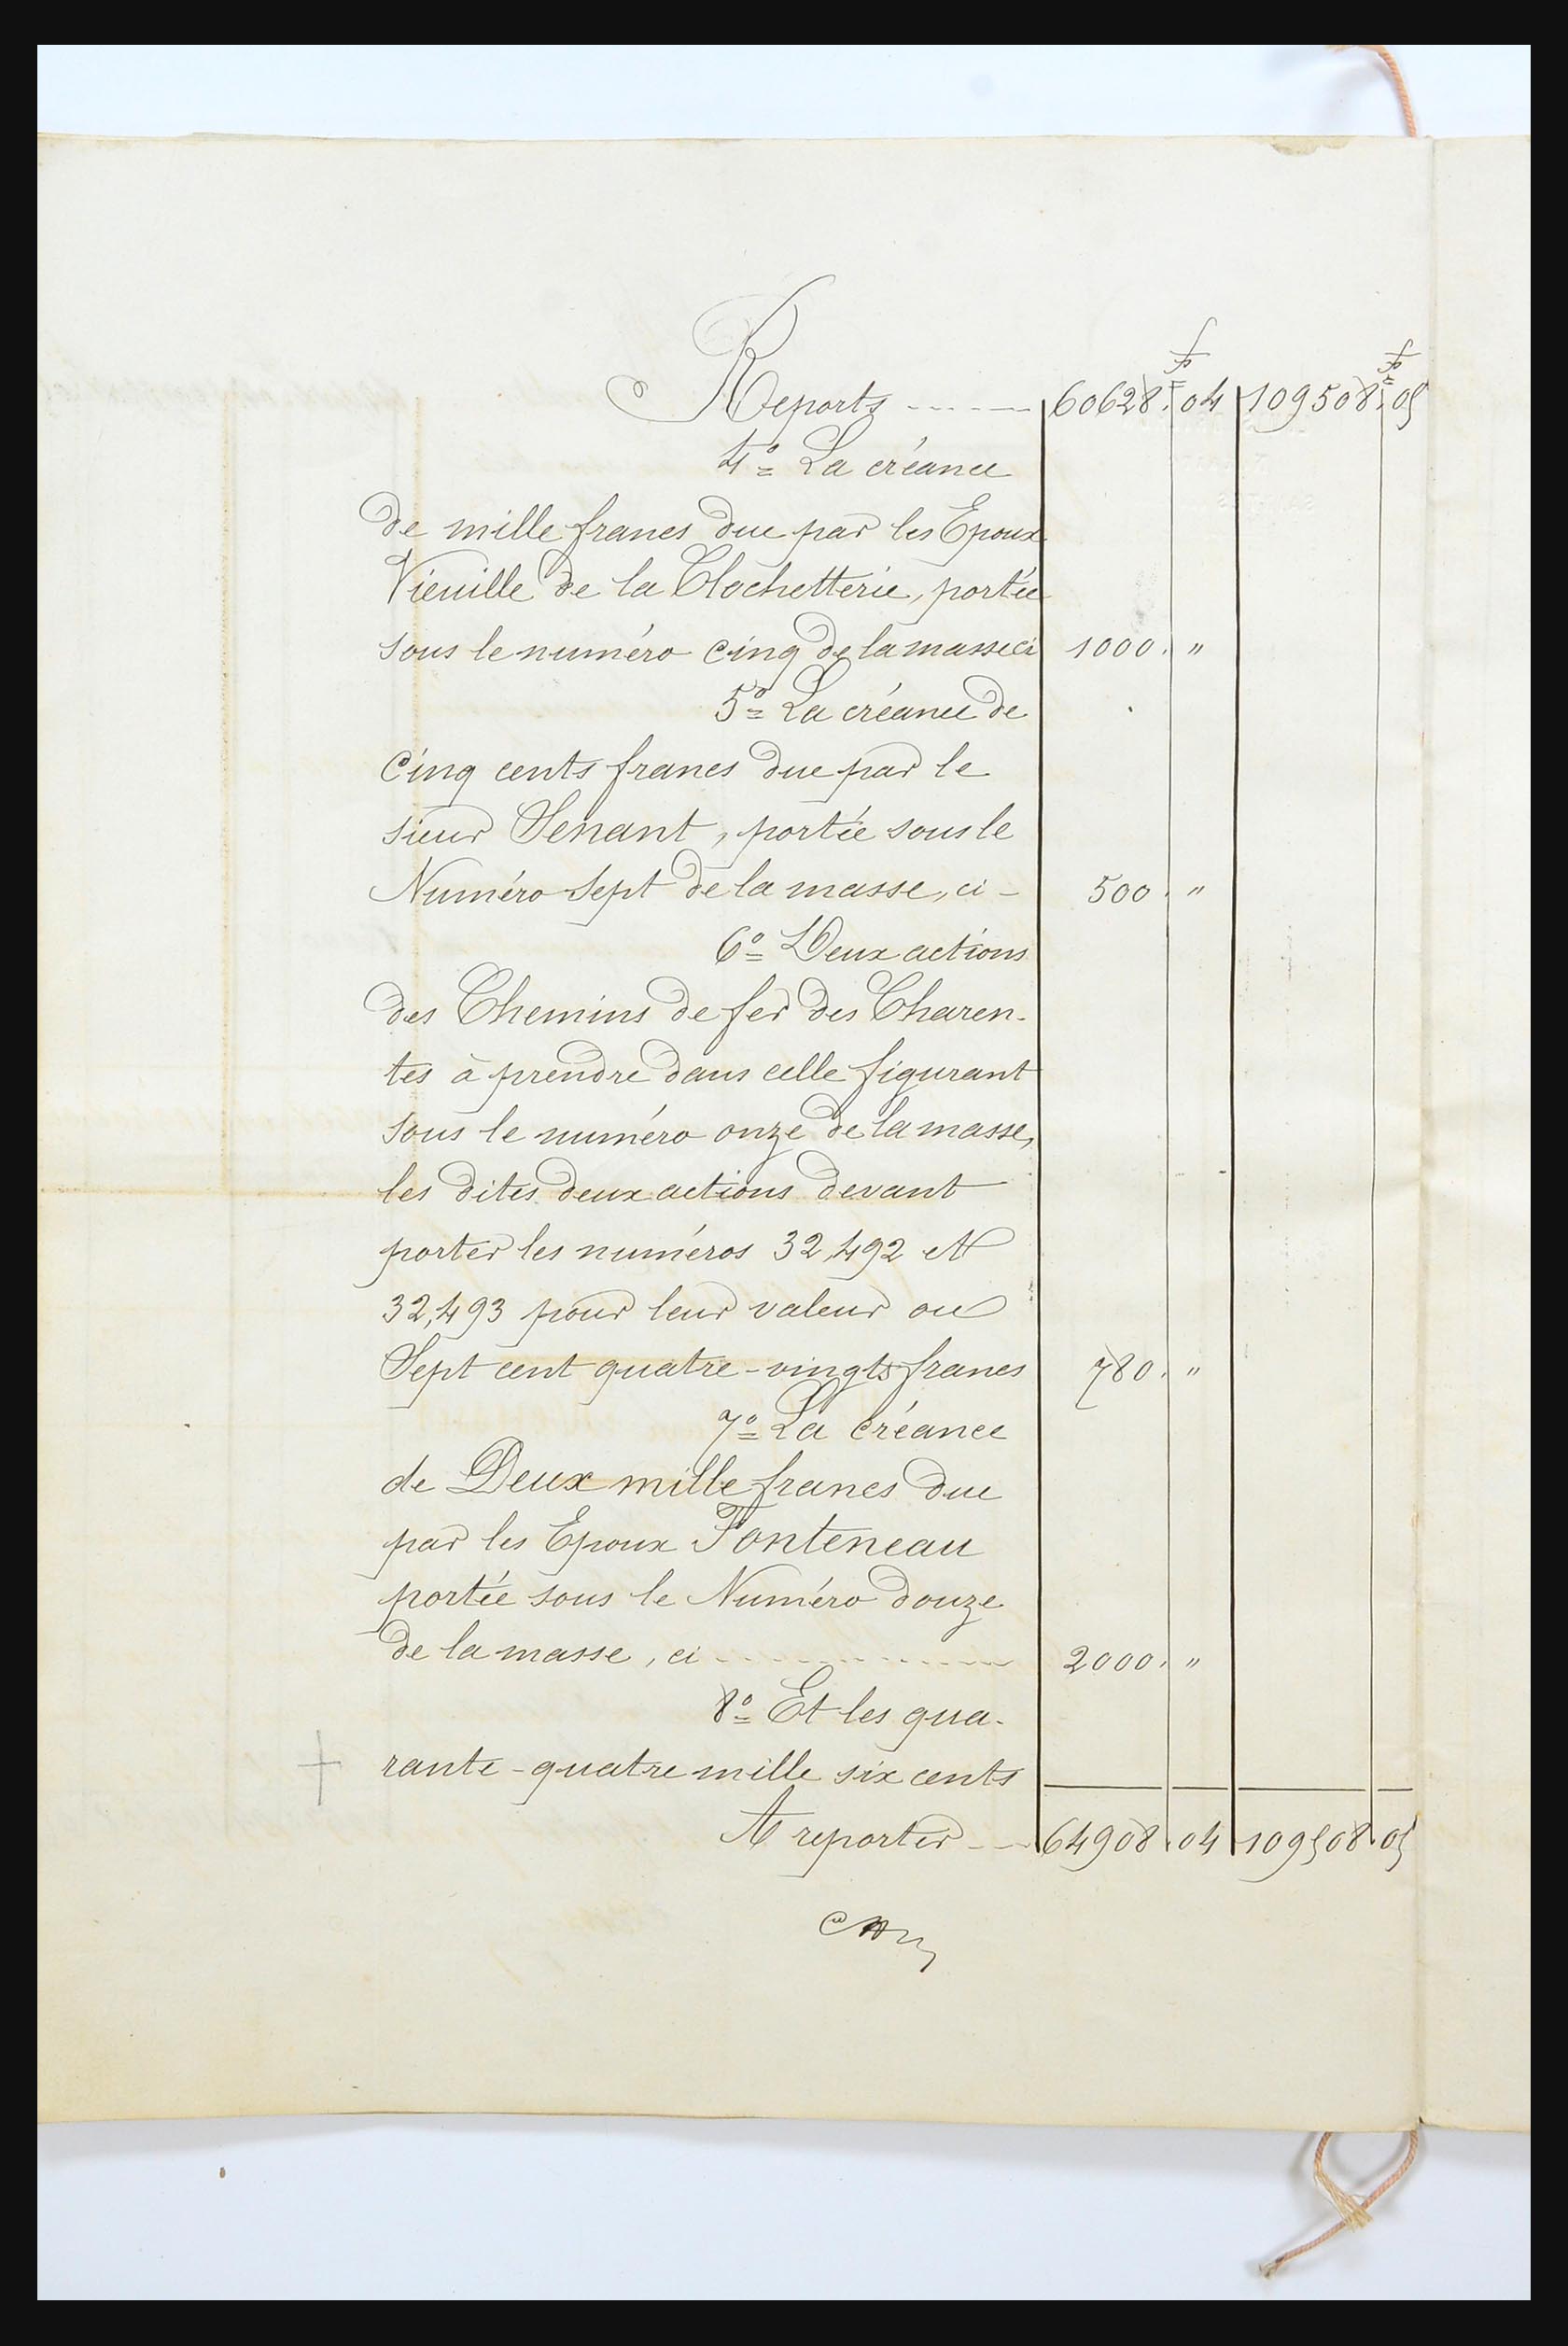 Reports ------ 60628.f 04 109508.f 05
4º La créance
de mille francs due par les Epoux
Vieuille de la Clochetterie, portée
sous le numéro cinq de la masse ci 1000. "
5º La créance de
Cinq cents francs due par le
sieur Senant, portée sous le
Numéro Sept de la masse, ci - 500. "
6º Deux actions
des Chemins de fer des Charen-
tes à prendre dans celle figurant
sous le numéro onze de la masse,
les dites deux actions devant
porter les numéros 32,492 et
32,493 pour leur valeur ou
Sept cent quatre-vingts francs 780. "
7º La créance
de Deux mille francs due
par les Epoux Fonteneau
portée sous le Numéro douze
de la masse, ci ------------ 2000. "
8º Et les qua-
rante-quatre mille six cents
A reporter --- 64908.04 109508.05